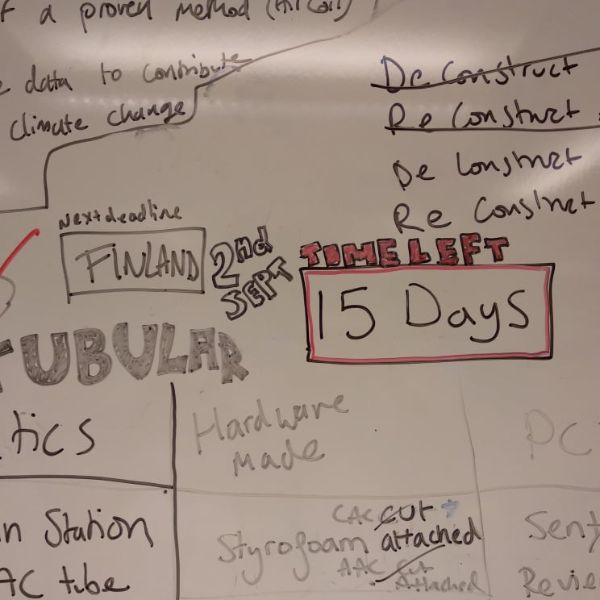 of a proven method (AirCoil)
data to contribute
climate change
De Construct
Re Construct
De Construct
Re Construct
Next deadline
FINLAND
2nd
SEPT
TIME LEFT
15 Days
TUBULAR
tics
Hardware
Made
PC
in Station
AC tube
CAC CUT
Styrofoam attached
AAC Cut
Attached
Sent
Revie